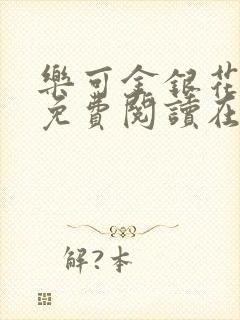 樂可金銀花
免費閱讀在
解?本